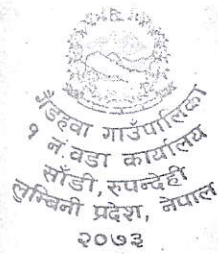 गैंडहवा गाउँपालिका
१ नं. वडा कार्यालय
सौंडी, रुपन्देही
लुम्बिनी प्रदेश, नेपाल
२०७३